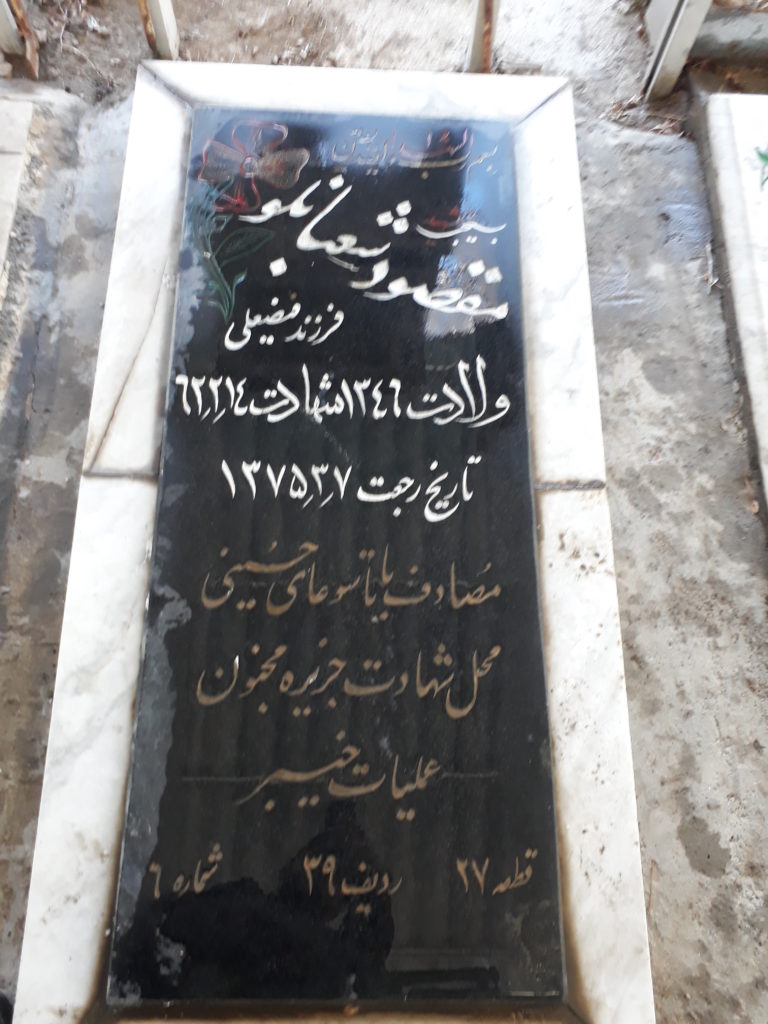 بسم رب الشهداء والصدیقین
بسیجی
مقصود شعبانلو
فرزند فیضعلی
ولادت ۱۳۴۶ شهادت ۶۲٫۲٫۱۴
تاریخ رجعت ۱۳۷۵٫۳٫۷
مُصادف با تاسوعای حُسینی
محل شهادت جزیره مجنون
عملیات خیبر
قطعه ۲۷ ردیف ۳۹ شماره ۶